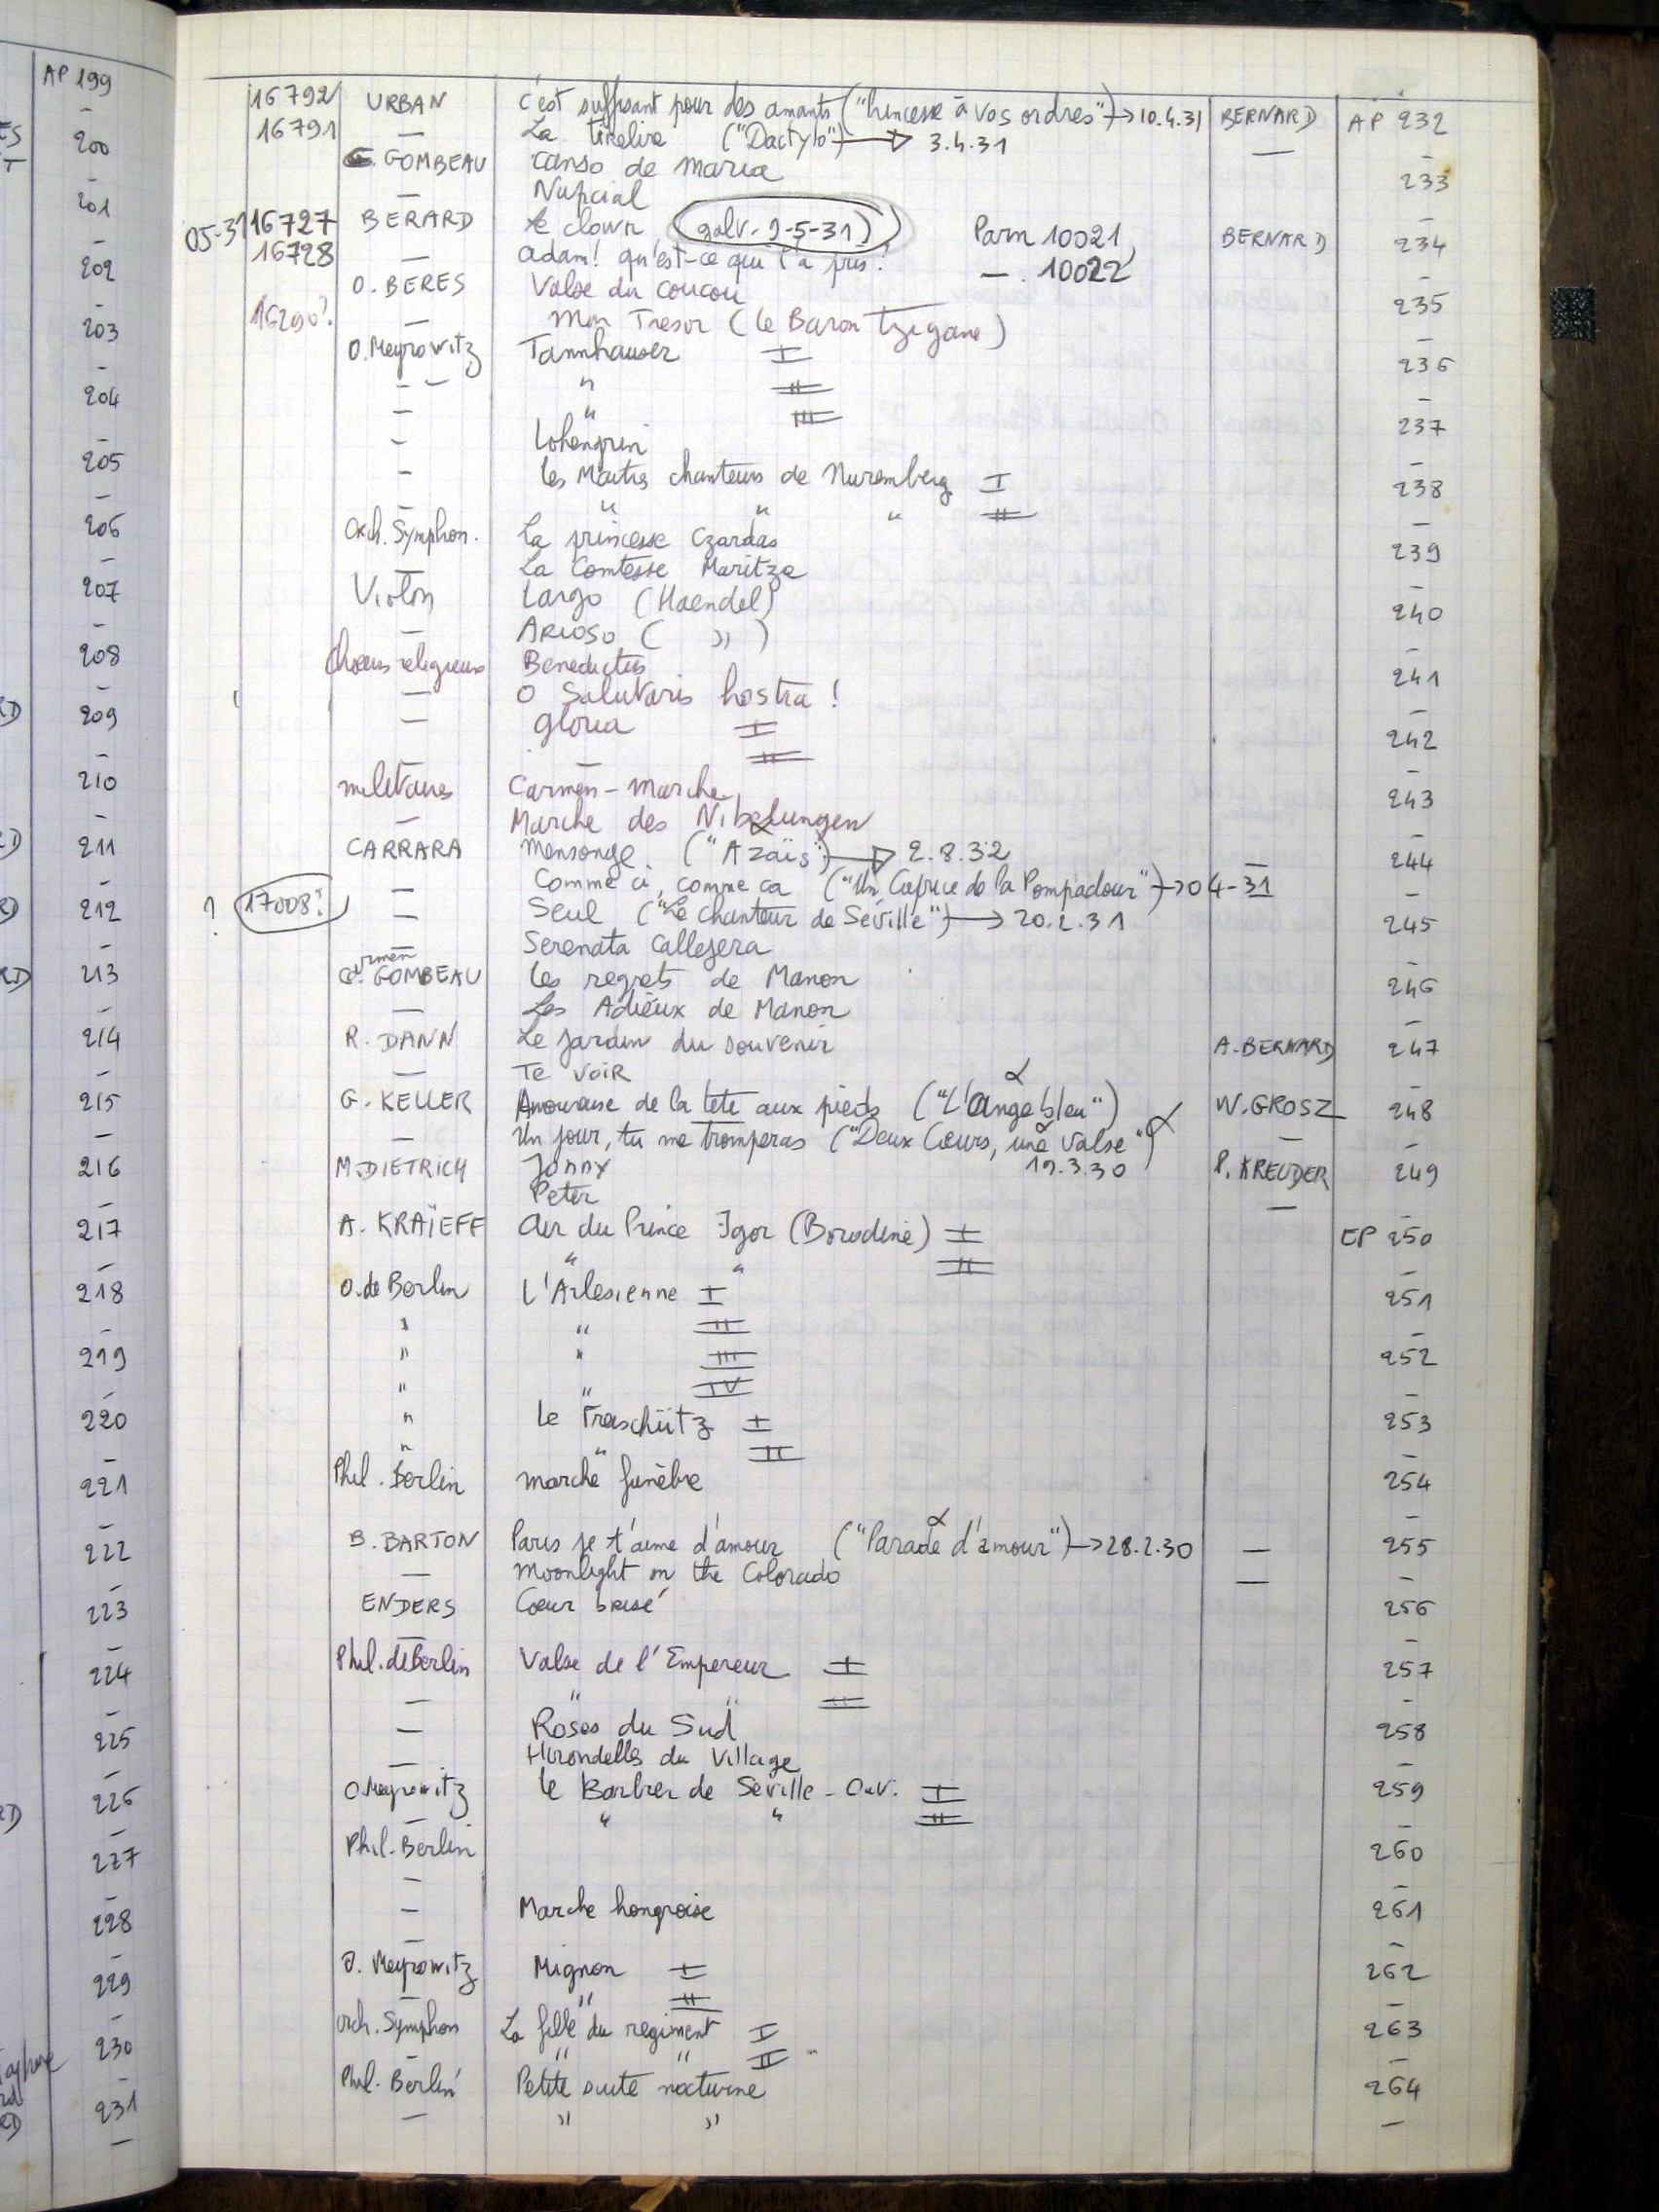 AP 199
—
200
—
201
—
202
—
203
—
204
—
205
—
206
—
207
—
208
—
209
—
210
—
211
—
212
—
213
—
214
—
215
—
216
—
217
—
218
—
219
—
220
—
221
—
222
—
223
—
224
—
225
—
226
—
227
—
228
—
229
—
230
—
231
—
16792 URBAN c'est suffisant pour des amants ("Princesse à vos ordres") → 10.4.31 BERNARD AP 232
16791 — La tirelire ("Dactylo") → 3.4.31 — —
G. GOMBEAU canso de maria 233
— Nupcial —
05-31 16727 BERARD Le clown (galv. 9-5-31) Parn 10021 BERNARD 234
16728 — Adam! qu'est-ce qui t'a pris? — . 10022 —
O. BERES Valse du coucou 235
16290? — Mon Tresor (le Baron Tzigane) —
O. Meyrowitz Tannhauser I 236
— — " II —
— " III 237
— Lohengrin —
— les Maitres chanteurs de Nuremberg I 238
— " " " II —
Orch. Symphon. La princesse Czardas 239
— La Comtesse Maritza —
Violon Largo (Haendel) 240
— Arioso ( " ) —
Choeurs religieux Benedictus 241
— O Salutaris hostia ! —
— Gloria I 242
— — II —
militaires Carmen - Marche 243
— Marche des Nibelungen —
CARRARA Mensonge. ("Azaïs") → 2.8.32 — 244
— Comme ci, comme ca ("Un Caprice de la Pompadour") → 04-31 —
? 17008? — Seul ("Le chanteur de Séville") → 20.2.31 245
— Serenata Callejera —
Carmen GOMBEAU Les regrets de Manon 246
— Les Adieux de Manon —
R. DANN Le jardin du souvenir A. BERNARD 247
— Te voir —
G. KELLER Amoureuse de la tete aux pieds ("L'ange bleu") W. GROSZ 248
— Un jour, tu me tromperas ("Deux Coeurs, une valse") — —
M. DIETRICH Jonny 19.3.30 P. KREUDER 249
Peter — —
A. KRAÏEFF Air du Prince Igor (Borodine) I EP 250
" " II —
O. de Berlin L'Arlesienne I 251
" " II —
" " III 252
" " IV —
" Le Freischütz I 253
" " II —
Phil. Berlin marche funèbre 254
—
B. BARTON Paris je t'aime d'amour ("Parade d'amour") → 28.2.30 — 255
— Moonlight on the Colorado — —
ENDERS Coeur brisé 256
— —
Phil. de Berlin Valse de l'Empereur I 257
— " " II —
— Roses du Sud 258
— Hirondelles du Village —
O. Meyrowitz Le Barbier de Séville - Ouv. I 259
— " " II —
Phil. Berlin 260
— —
— Marche hongroise 261
— —
O. Meyrowitz Mignon I 262
— " II —
Orch. Symphon La fille du regiment I 263
— " " II —
Phil. Berlin Petite suite nocturne 264
— " " —